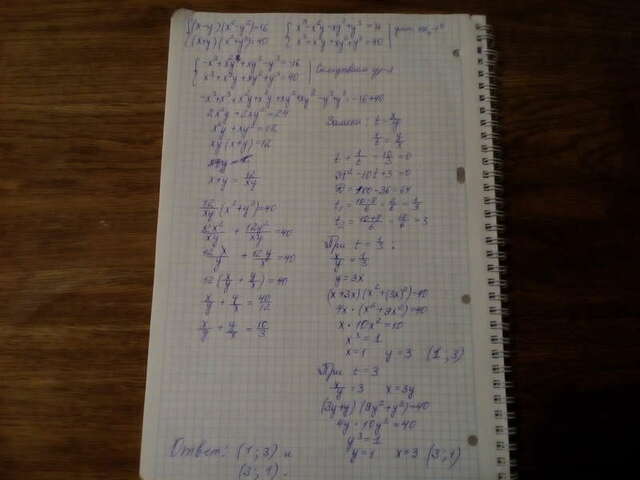 {(x-y)(x²-y²)=16
(x+y)(x²+y²)=40
{x³-x²y-xy²+y³=16
x³+x²y+xy²+y³=40
{-x³+x²y+xy²-y³=-16
x³+x²y+xy²+y³=40
-x³+x³+x²y+x²y+xy²+xy²-y³+y³=-16+40
2x²y+2xy²=24
x²y+xy²=12
xy(x+y)=12
x+y=12/xy
12/xy(x²+y²)=40
12x²/xy + 12y²/xy =40
12x/y + 12y/x =40
12(x/y + y/x)=40
x/y + y/x = 40/12
x/y + y/x = 10/3
Замена: t=x/y
1/t=y/x
t+1/t-10/3=0
3t²-10t+3=0
D=100-36=64
t₁=(10-8)/6=2/6=1/3
t₂=(10+8)/6=18/6=3
При t=1/3:
x/y=1/3
y=3x
(x+3x)(x²+(3x)²)=40
4x·(x²+9x²)=40
x·10x²=10
x³=1
x=1 y=3 (1;3)
При t=3
x/y=3 x=3y
(3y+y)(9y²+y²)=40
4y·10y²=40
y³=1
y=1 x=3 (3;1)
Ответ: (1;3) и
(3;1).